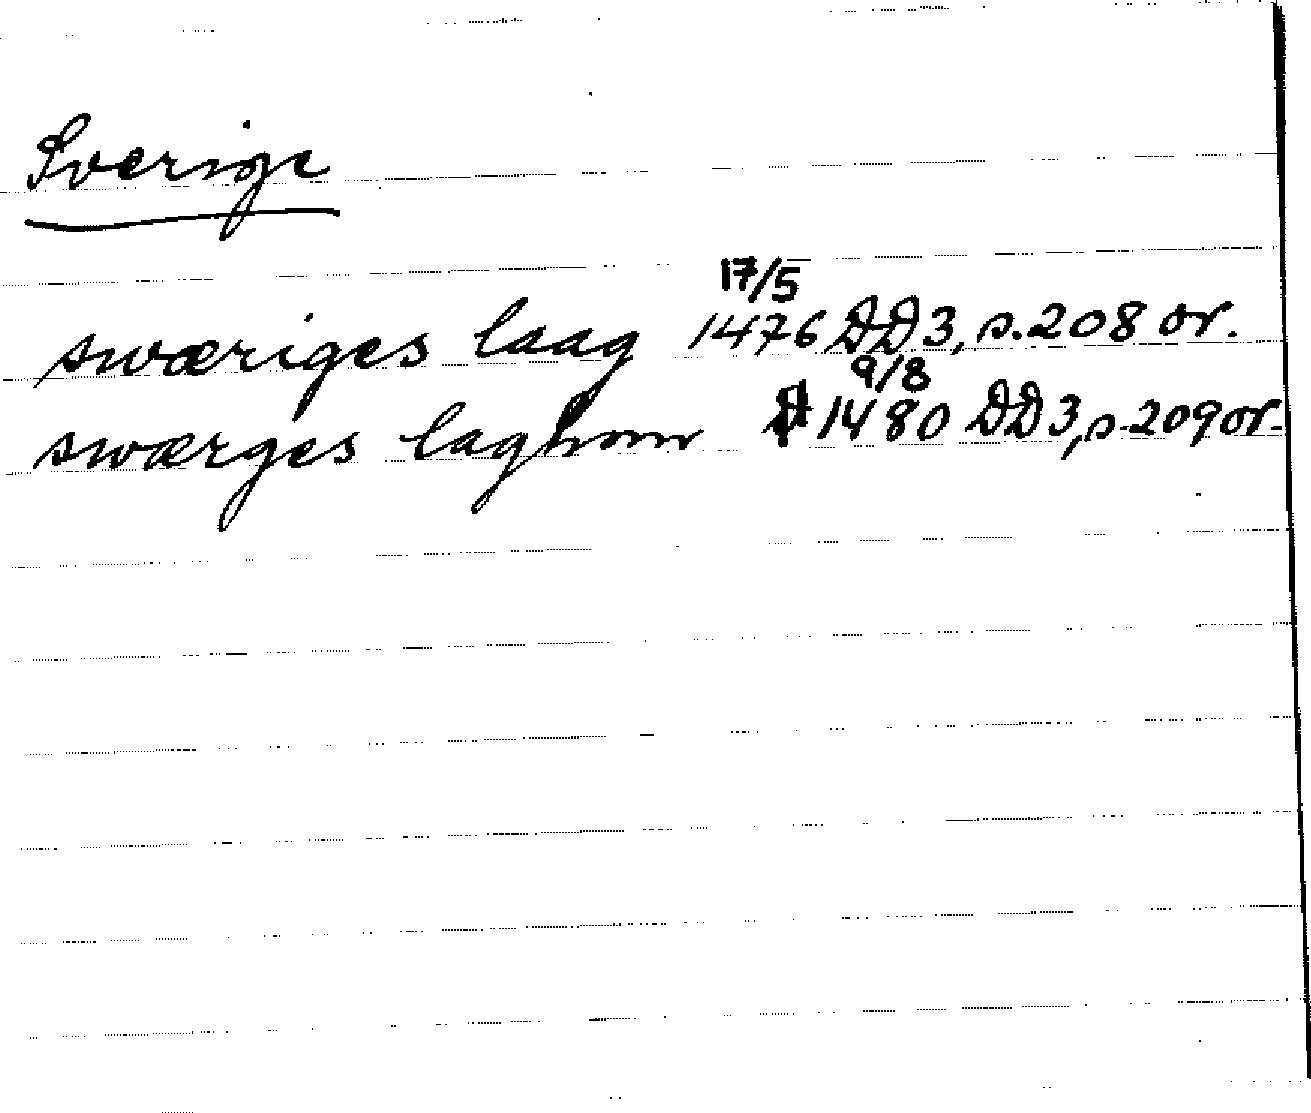 Sverige
17/5
swæriges laag 1476 DD3, s. 208 or.
9/8
swærges laghom 1480 DD3, s. 209 or.